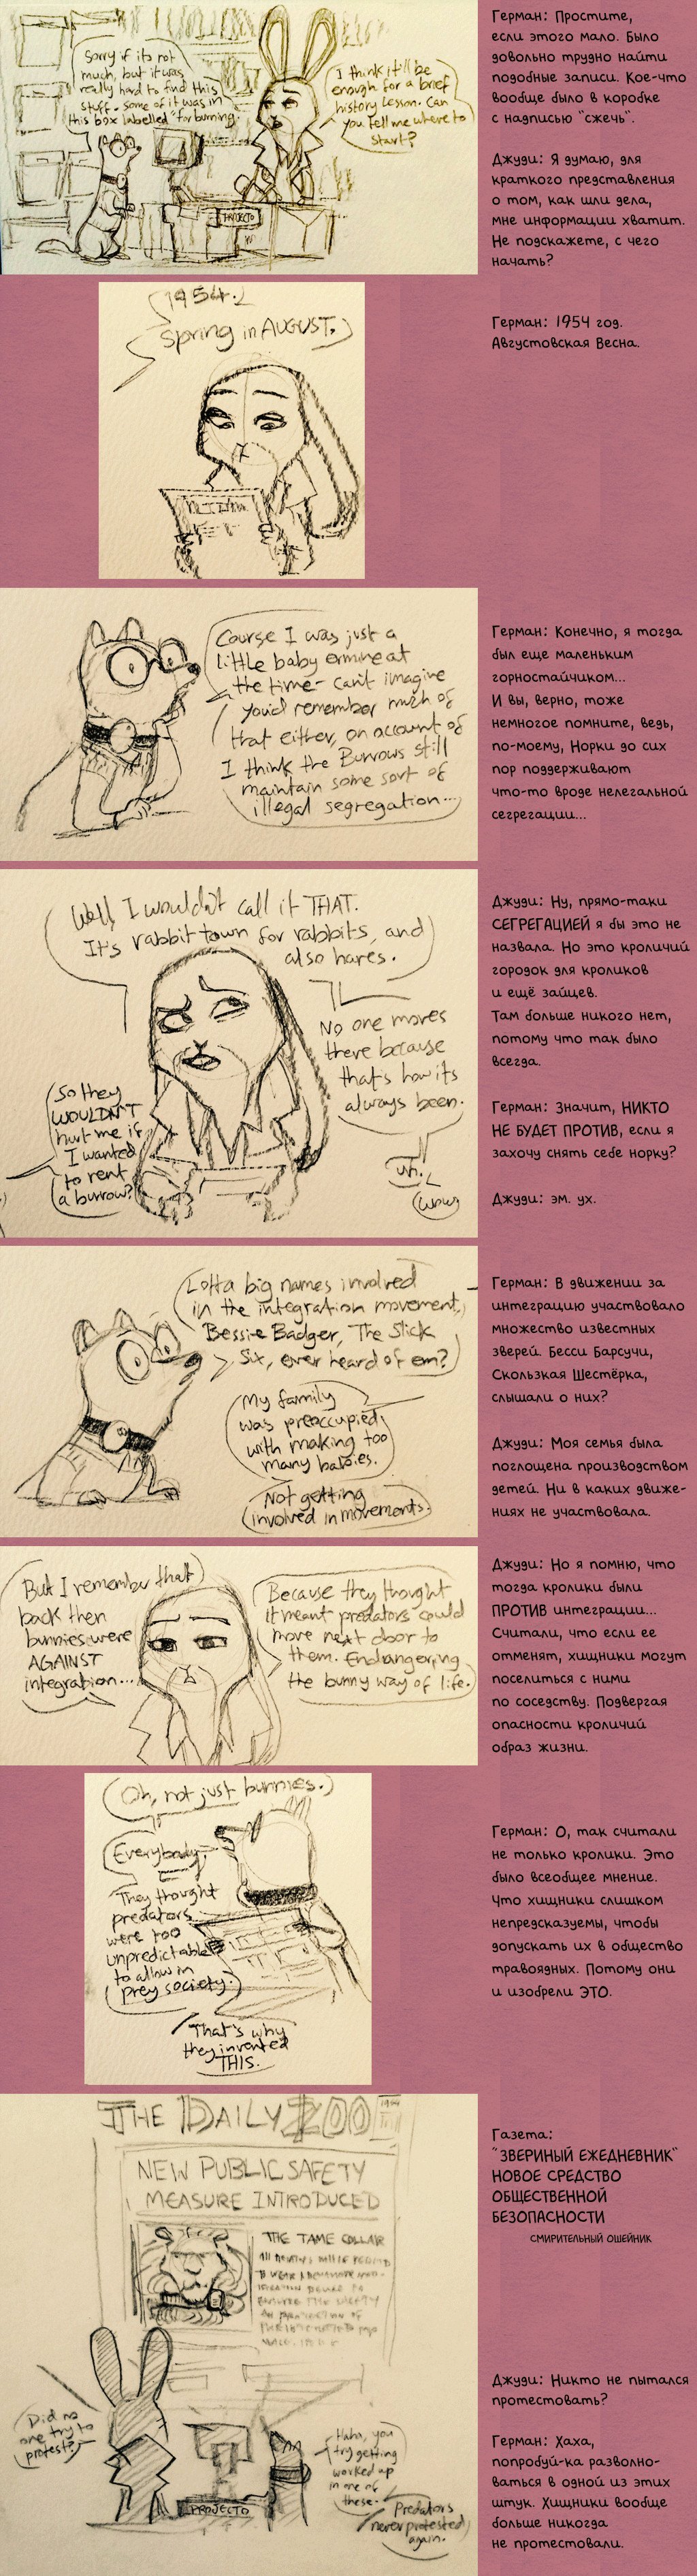 Sorry if its not
much, but it was
really hard to find this
stuff - some of it was in
this box labelled "for burning."
I think it'll be
enough for a brief
history lesson. Can
you tell me where to
start?
PROJECTO
Герман: Простите,
если этого мало. Было
довольно трудно найти
подобные записи. Кое-что
вообще было в коробке
с надписью "сжечь".
Джуди: Я думаю, для
краткого представления
о том, как шли дела,
мне информации хватит.
Не подскажете, с чего
начать?
1954.
Spring in AUGUST.
Герман: 1954 год.
Августовская Весна.
Course I was just a
little baby ermine at
the time - can't imagine
you'd remember much of
that either, on account of
I think the Burrows still
maintain some sort of
illegal segregation...
Герман: Конечно, я тогда
был еще маленьким
горностайчиком...
И вы, верно, тоже
немногое помните, ведь,
по-моему, Норки до сих
пор поддерживают
что-то вроде нелегальной
сегрегации...
Well, I wouldn't call it THAT.
It's rabbit town for rabbits, and
also hares.
No one moves
there because
that's how its
always been.
So they
WOULDN'T
hurt me if
I wanted
to rent
a burrow?
uh.
Джуди: Ну, прямо-таки
СЕГРЕГАЦИЕЙ я бы это не
назвала. Но это кроличий
городок для кроликов
и ещё зайцев.
Там больше никого нет,
потому что так было
всегда.
Герман: Значит, НИКТО
НЕ БУДЕТ ПРОТИВ, если я
захочу снять себе норку?
Джуди: эм. ух.
Lotta big names involved
in the integration movement,
Bessie Badger, The Slick
Six, ever heard of em?
My family
was preoccupied
with making too
many babies.
Not getting
involved in movements.
Герман: В движении за
интеграцию участвовало
множество известных
зверей. Бесси Барсучи,
Скользкая Шестёрка,
слышали о них?
Джуди: Моя семья была
поглощена производством
детей. Ни в каких движе-
ниях не участвовала.
But I remember that
back then
bunnies were
AGAINST
integration...
Because they thought
it meant predators could
move next door to
them. Endangering
the bunny way of life.
Джуди: Но я помню, что
тогда кролики были
ПРОТИВ интеграции...
Считали, что если ее
отменят, хищники могут
поселиться с ними
по соседству. Подвергая
опасности кроличий
образ жизни.
Oh, not just bunnies.
Everybody.
They thought
predators
were too
unpredictable
to allow in
prey society.
That's why
they invented
THIS.
Герман: О, так считали
не только кролики. Это
было всеобщее мнение.
Что хищники слишком
непредсказуемы, чтобы
допускать их в общество
травоядных. Потому они
и изобрели ЭТО.
THE DAILY ZOO
NEW PUBLIC SAFETY
MEASURE INTRODUCED
THE TAME COLLAR
Газета:
"ЗВЕРИНЫЙ ЕЖЕДНЕВНИК"
НОВОЕ СРЕДСТВО
ОБЩЕСТВЕННОЙ
БЕЗОПАСНОСТИ
СМИРИТЕЛЬНЫЙ ОШЕЙНИК
Did no
one try to
protest?
Haha, you
try getting
worked up
in one of
these.
Predators
never protested
again.
PROJECTO
Джуди: Никто не пытался
протестовать?
Герман: Хаха,
попробуй-ка разволно-
ваться в одной из этих
штук. Хищники вообще
больше никогда
не протестовали.